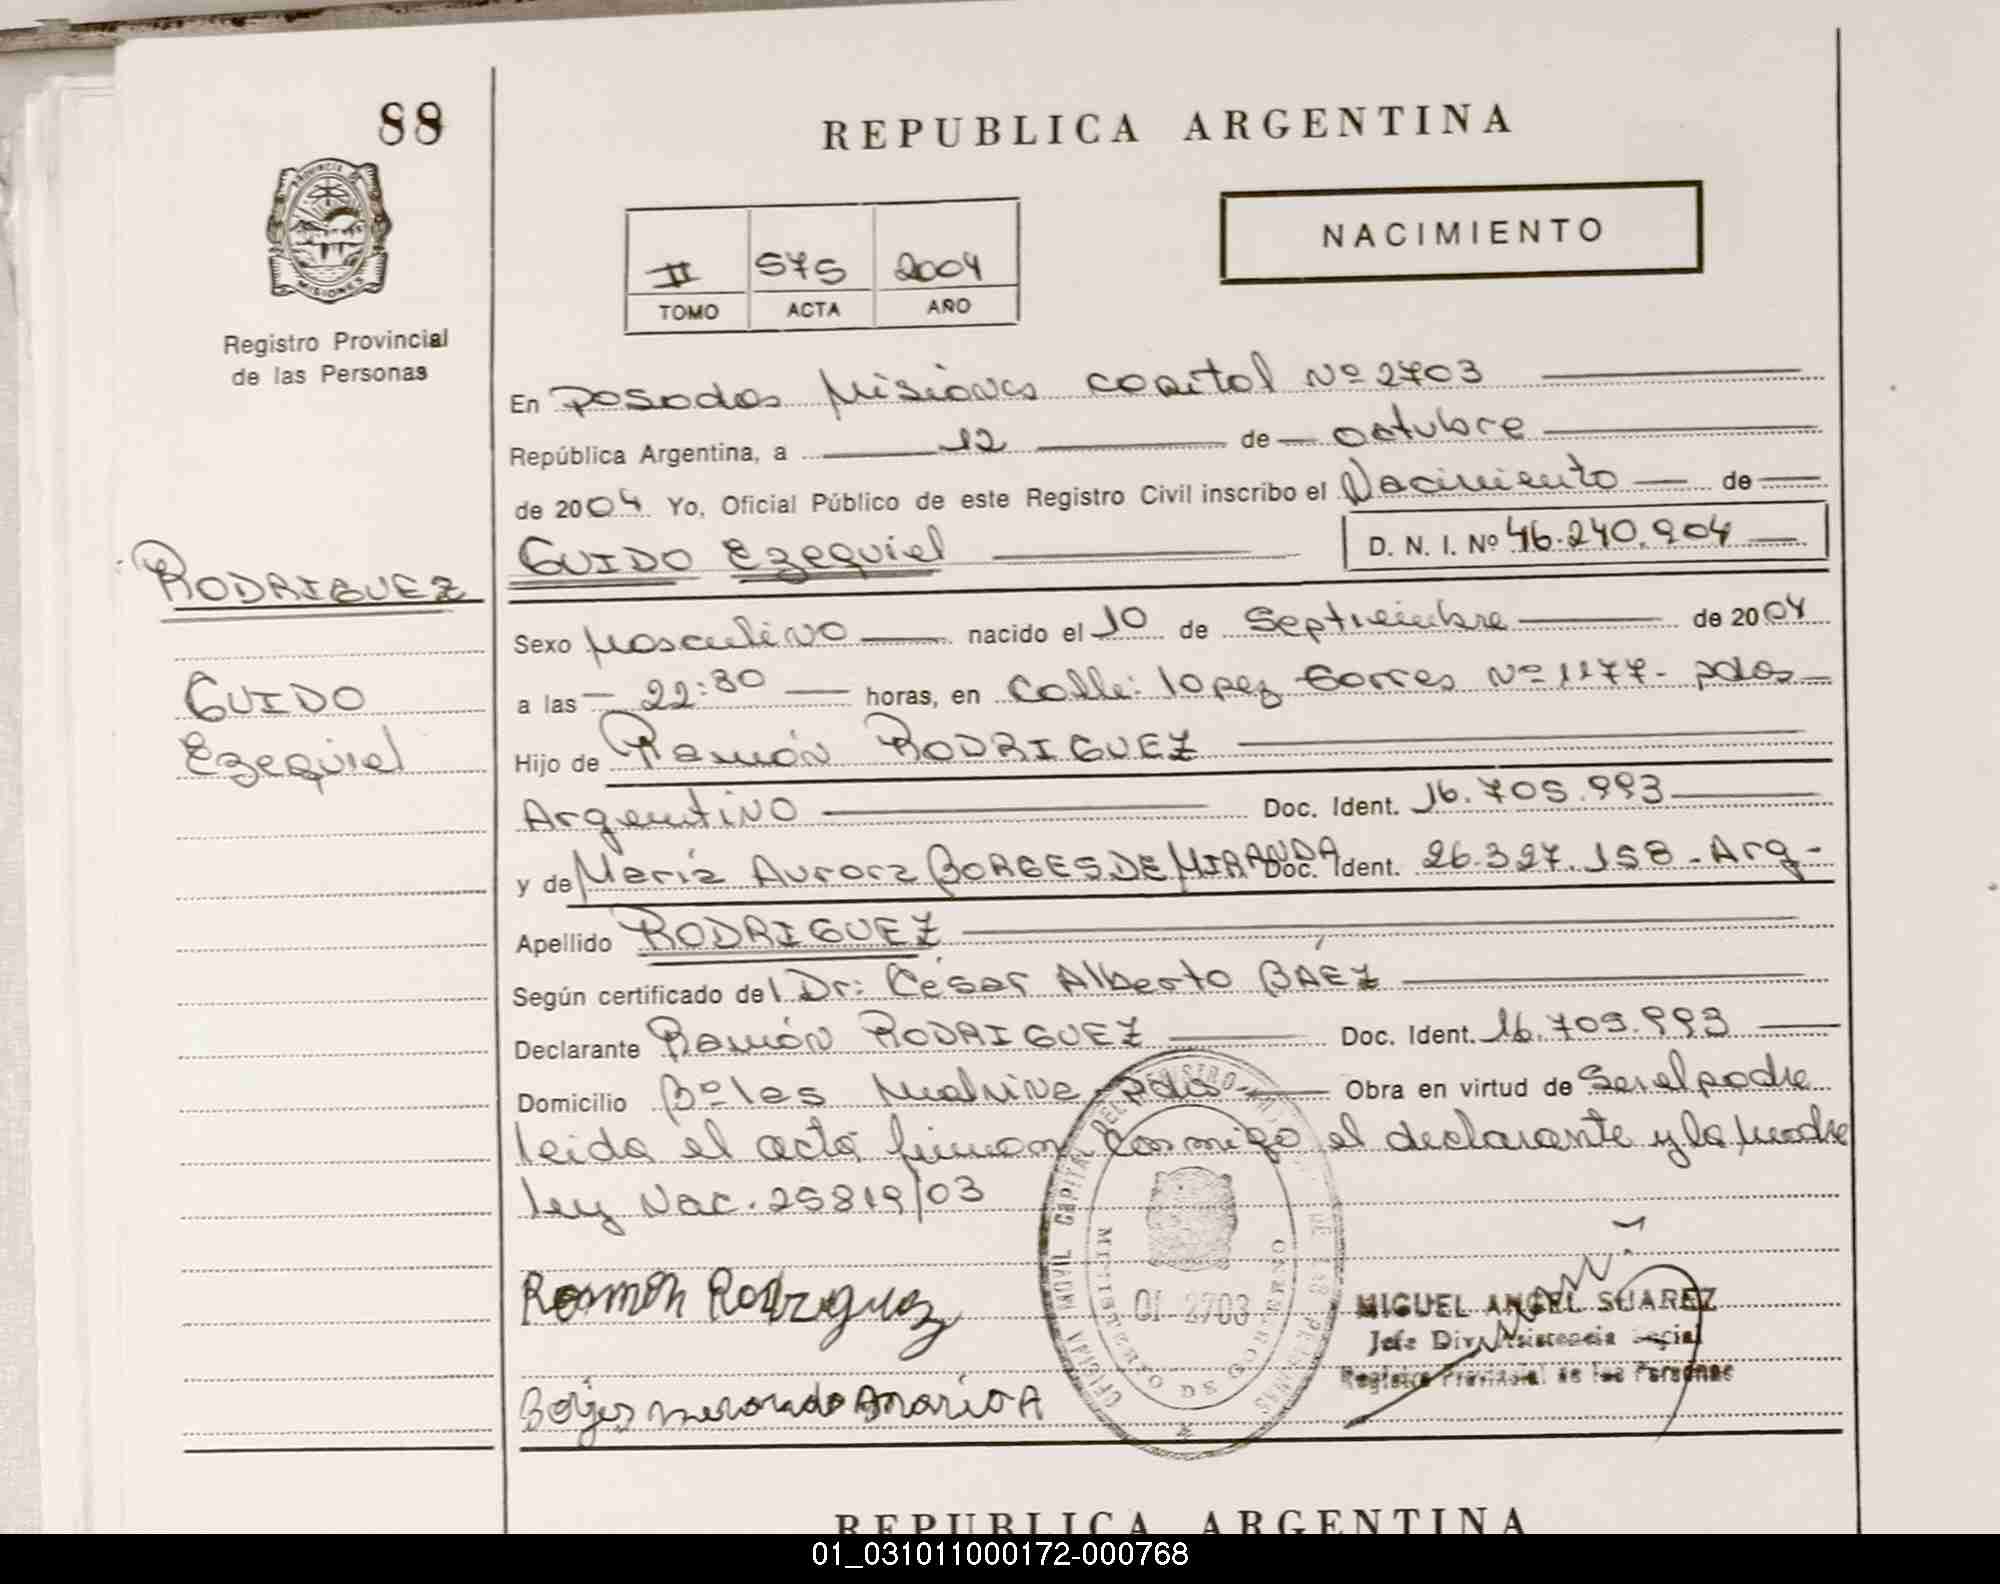 88
REPUBLICA ARGENTINA
PROVINCIA DE
MISIONES
Registro Provincial
de las Personas
NACIMIENTO
II 575 2004
TOMO ACTA AÑO
En Posadas Misiones capital Nº 2703
República Argentina, a 12 de octubre
de 2004 Yo, Oficial Público de este Registro Civil inscribo el Nacimiento de
GUIDO Ezequiel D. N. I. Nº 46.240.904
RODRIGUEZ
GUIDO
Ezequiel
Sexo Masculino nacido el 10 de Septiembre de 2004
a las 22:30 horas, en Calle: lopez torres Nº 1177 - pdas
Hijo de Ramón RODRIGUEZ
Argentino Doc. Ident. 16.709.993
y de María Aurora BORGES DE MIRANDA Doc. Ident. 26.327.158 - Arg -
Apellido RODRIGUEZ
Según certificado del Dr: César Alberto BÁEZ
Declarante Ramón RODRIGUEZ Doc. Ident. 16.709.993
Domicilio Bº las Malvina - pdas Obra en virtud de Ser el padre
leida el acta firman conmigo el declarante y la madre
ley Nac. 25819/03
Ramón Rodriguez
MIGUEL ANGEL SUAREZ
Jefe Div. Asistencia Social
Registro Provincial de las Personas
OFICINA CAPITAL DEL REGISTRO DE LAS PERSONAS
MINISTERIO DE GOBIERNO
01-2703
REPUBLICA ARGENTINA
01_031011000172-000768